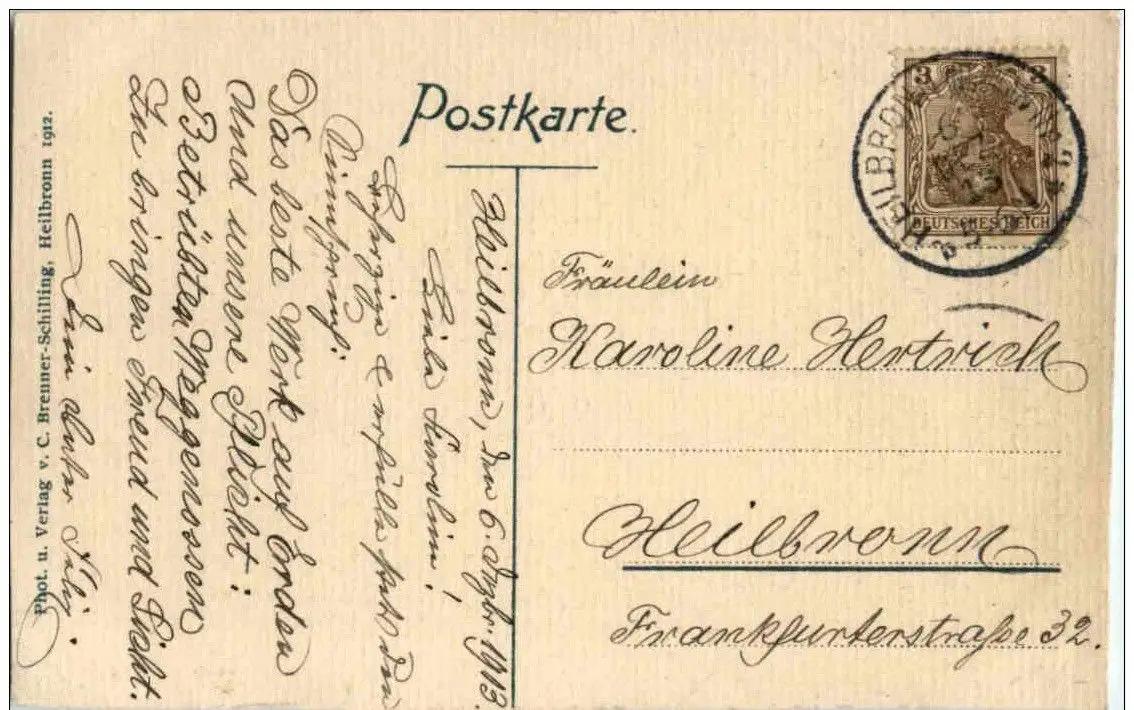 Postkarte.
Heilbronn, den 6. Dzbr. 1913.
Liebe Karoline!
Beherzige & erfülle stets den
Sinnspruch:
Das beste Werk auf Erden
Und unsere Pflicht:
Betrübten Weggenossen
Zu bringen Freud und Licht.
Dein Vater
Phot. u. Verlag v. C. Brenner-Schilling, Heilbronn 1912.
3 3
DEUTSCHES REICH
HEILBRONN
Fräulein
Karoline Hertrich
Heilbronn
Frankfurterstraße 32.